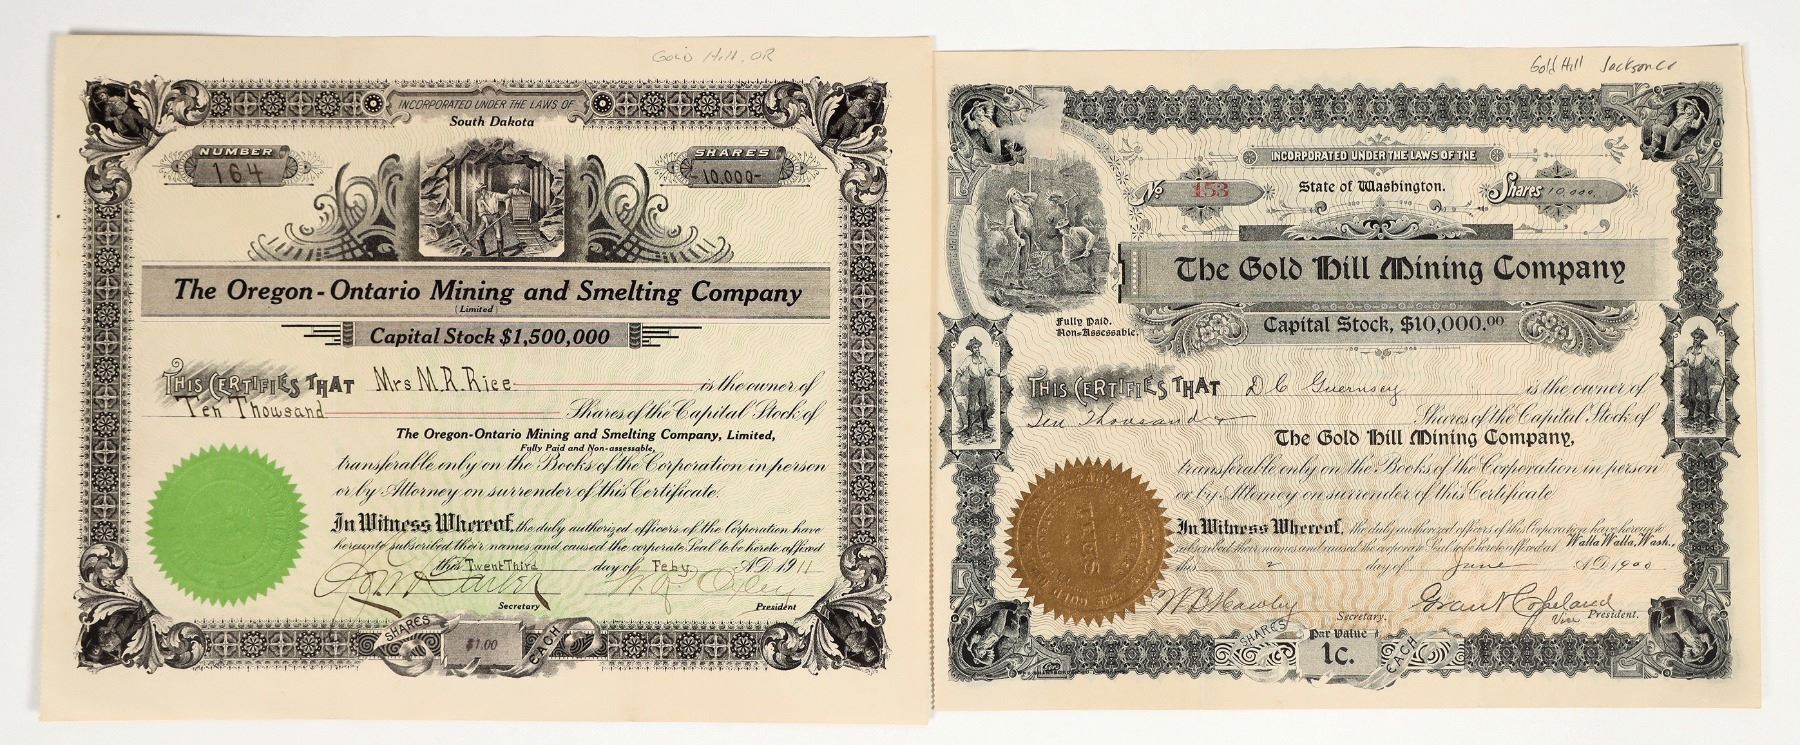 Gold Hill, OR
INCORPORATED UNDER THE LAWS OF
South Dakota
NUMBER
164
SHARES
-10,000-
The Oregon-Ontario Mining and Smelting Company
(Limited)
Capital Stock $1,500,000
THIS CERTIFIES THAT Mrs M.R. Rice is the owner of
Ten Thousand Shares of the Capital Stock of
The Oregon-Ontario Mining and Smelting Company, Limited,
Fully Paid and Non-assessable,
transferable only on the Books of the Corporation in person
or by Attorney on surrender of this Certificate.
In Witness Whereof, the duly authorized officers of the Corporation have
hereunto subscribed their names and caused the corporate Seal to be hereto affixed
this TwentThird day of Feby A.D. 1911
Secretary
President
SHARES $1.00 EACH
Gold Hill Jackson Co
INCORPORATED UNDER THE LAWS OF THE
State of Washington.
No 153
Shares 10,000
The Gold Hill Mining Company
Capital Stock, $10,000.00
Fully Paid.
Non-Assessable.
THIS CERTIFIES THAT D C Guernsey is the owner of
Ten Thousand Shares of the Capital Stock of
The Gold Hill Mining Company,
transferable only on the Books of the Corporation in person
or by Attorney on surrender of this Certificate
In Witness Whereof, the duly authorized officers of this Corporation have hereunto
subscribed their names and caused the corporate Seal to be hereto affixed at Walla Walla, Wash.,
this 2 day of June A.D. 1900
W B Hawley
Secretary.
Grant Copeland
Vice President.
SHARES Par Value 1c. EACH